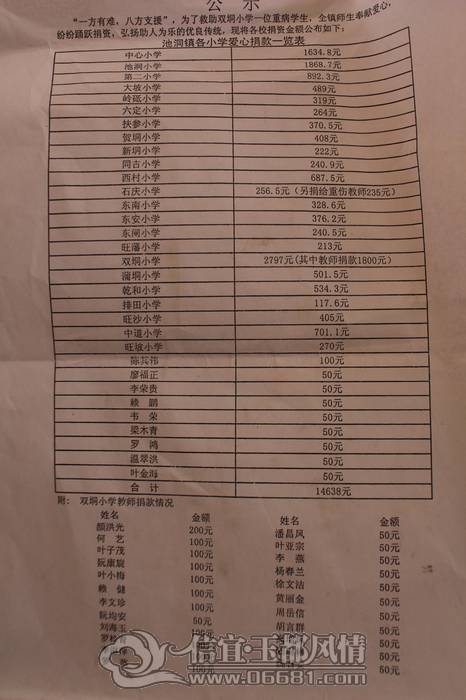 公示
“一方有难，八方支援”，为了救助双垌小学一位重病学生，全镇师生奉献爱心，
纷纷踊跃捐资，弘扬助人为乐的优良传统，现将各校捐资金额公布如下：
池洞镇各小学爱心捐款一览表
中心小学 1634.8元
池洞小学 1868.7元
第二小学 892.3元
大坡小学 489元
岭砥小学 319元
六定小学 264元
扶参小学 370.5元
贺垌小学 408元
新垌小学 222元
同古小学 240.9元
西村小学 687.5元
石庆小学 256.5元（另捐给重伤教师235元）
东南小学 328.6元
东安小学 376.2元
东闸小学 240.5元
旺藩小学 213元
双垌小学 2797元（其中教师捐款1800元）
蒲垌小学 501.5元
乾和小学 534.3元
排田小学 117.6元
旺沙小学 405元
中道小学 701.1元
旺坡小学 270元
陈其祎 100元
廖福正 50元
李荣贵 50元
赖鹏 50元
韦荣 50元
梁木青 50元
罗鸿 50元
温翠洪 50元
叶金海 50元
合计 14638元
附：双垌小学教师捐款情况
姓名 金额 姓名 金额
颜洪光 200元 潘昌凤 50元
何艺 100元 叶亚宗 50元
叶子茂 100元 李燕 50元
阮康旋 100元 杨春兰 50元
叶小梅 100元 徐文沽 50元
赖健 100元 黄丽金 50元
李文珍 100元 周岳信 50元
阮均安 50元 胡言群 50元
刘海玉 100元 50元
100元 50元
信宜·玉都风情
www.06681.com